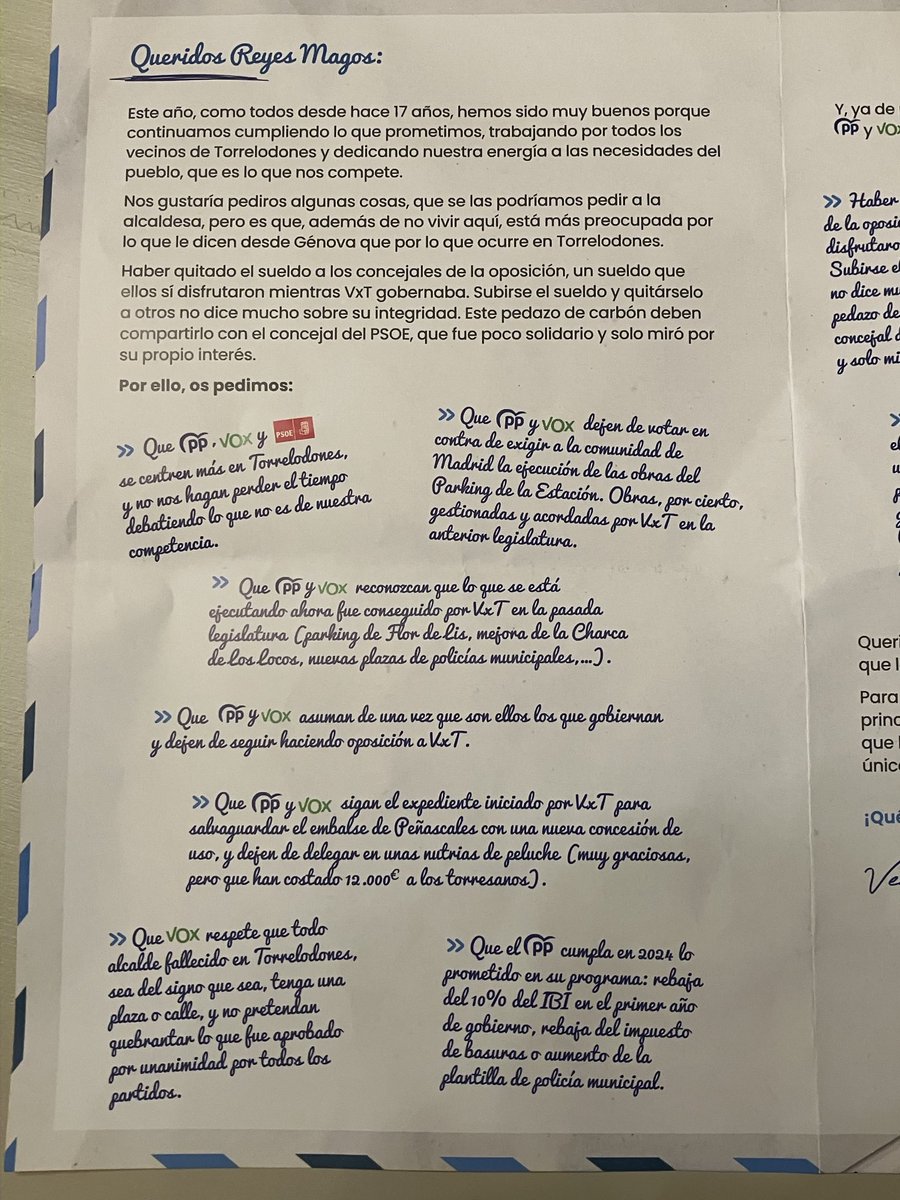 Queridos Reyes Magos:
Este año, como todos desde hace 17 años, hemos sido muy buenos porque
continuamos cumpliendo lo que prometimos, trabajando por todos los
vecinos de Torrelodones y dedicando nuestra energía a las necesidades del
pueblo, que es lo que nos compete.
Nos gustaría pediros algunas cosas, que se las podríamos pedir a la
alcaldesa, pero es que, además de no vivir aquí, está más preocupada por
lo que le dicen desde Génova que por lo que ocurre en Torrelodones.
Haber quitado el sueldo a los concejales de la oposición, un sueldo que
ellos sí disfrutaron mientras VxT gobernaba. Subirse el sueldo y quitárselo
a otros no dice mucho sobre su integridad. Este pedazo de carbón deben
compartirlo con el concejal del PSOE, que fue poco solidario y solo miró por
su propio interés.
Por ello, os pedimos:
» Que PP, VOX y PSOE
se centren más en Torrelodones,
y no nos hagan perder el tiempo
debatiendo lo que no es de nuestra
competencia.
» Que PP y VOX dejen de votar en
contra de exigir a la comunidad de
Madrid la ejecución de las obras del
Parking de la Estación. Obras, por cierto,
gestionadas y acordadas por VxT en la
anterior legislatura.
» Que PP y VOX reconozcan que lo que se está
ejecutando ahora fue conseguido por VxT en la pasada
legislatura (parking de Flor de Lis, mejora de la Charca
de Los Locos, nuevas plazas de policías municipales,...).
» Que PP y VOX asuman de una vez que son ellos los que gobiernan
y dejen de seguir haciendo oposición a VxT.
» Que PP y VOX sigan el expediente iniciado por VxT para
salvaguardar el embalse de Peñascales con una nueva concesión de
uso, y dejen de delegar en unas nutrias de peluche (muy graciosas,
pero que han costado 12.000€ a los torresanos).
» Que VOX respete que todo
alcalde fallecido en Torrelodones,
sea del signo que sea, tenga una
plaza o calle, y no pretendan
quebrantar lo que fue aprobado
por unanimidad por todos los
partidos.
» Que el PP cumpla en 2024 lo
prometido en su programa: rebaja
del 10% del IBI en el primer año
de gobierno, rebaja del impuesto
de basuras o aumento de la
plantilla de policía municipal.
Y, ya de
PP y VOX
» Haber
de la oposi
disfrutaro
Subirse el
no dice mu
pedazo de
concejal d
y solo mi
»
Queri
que l
Para
princ
que l
únic
¡Qué
Ve